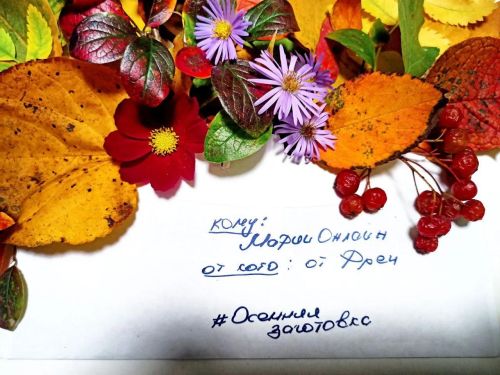 кому:
Марии Онлайн
от кого: от Фреи
#Осенняя
заготовка